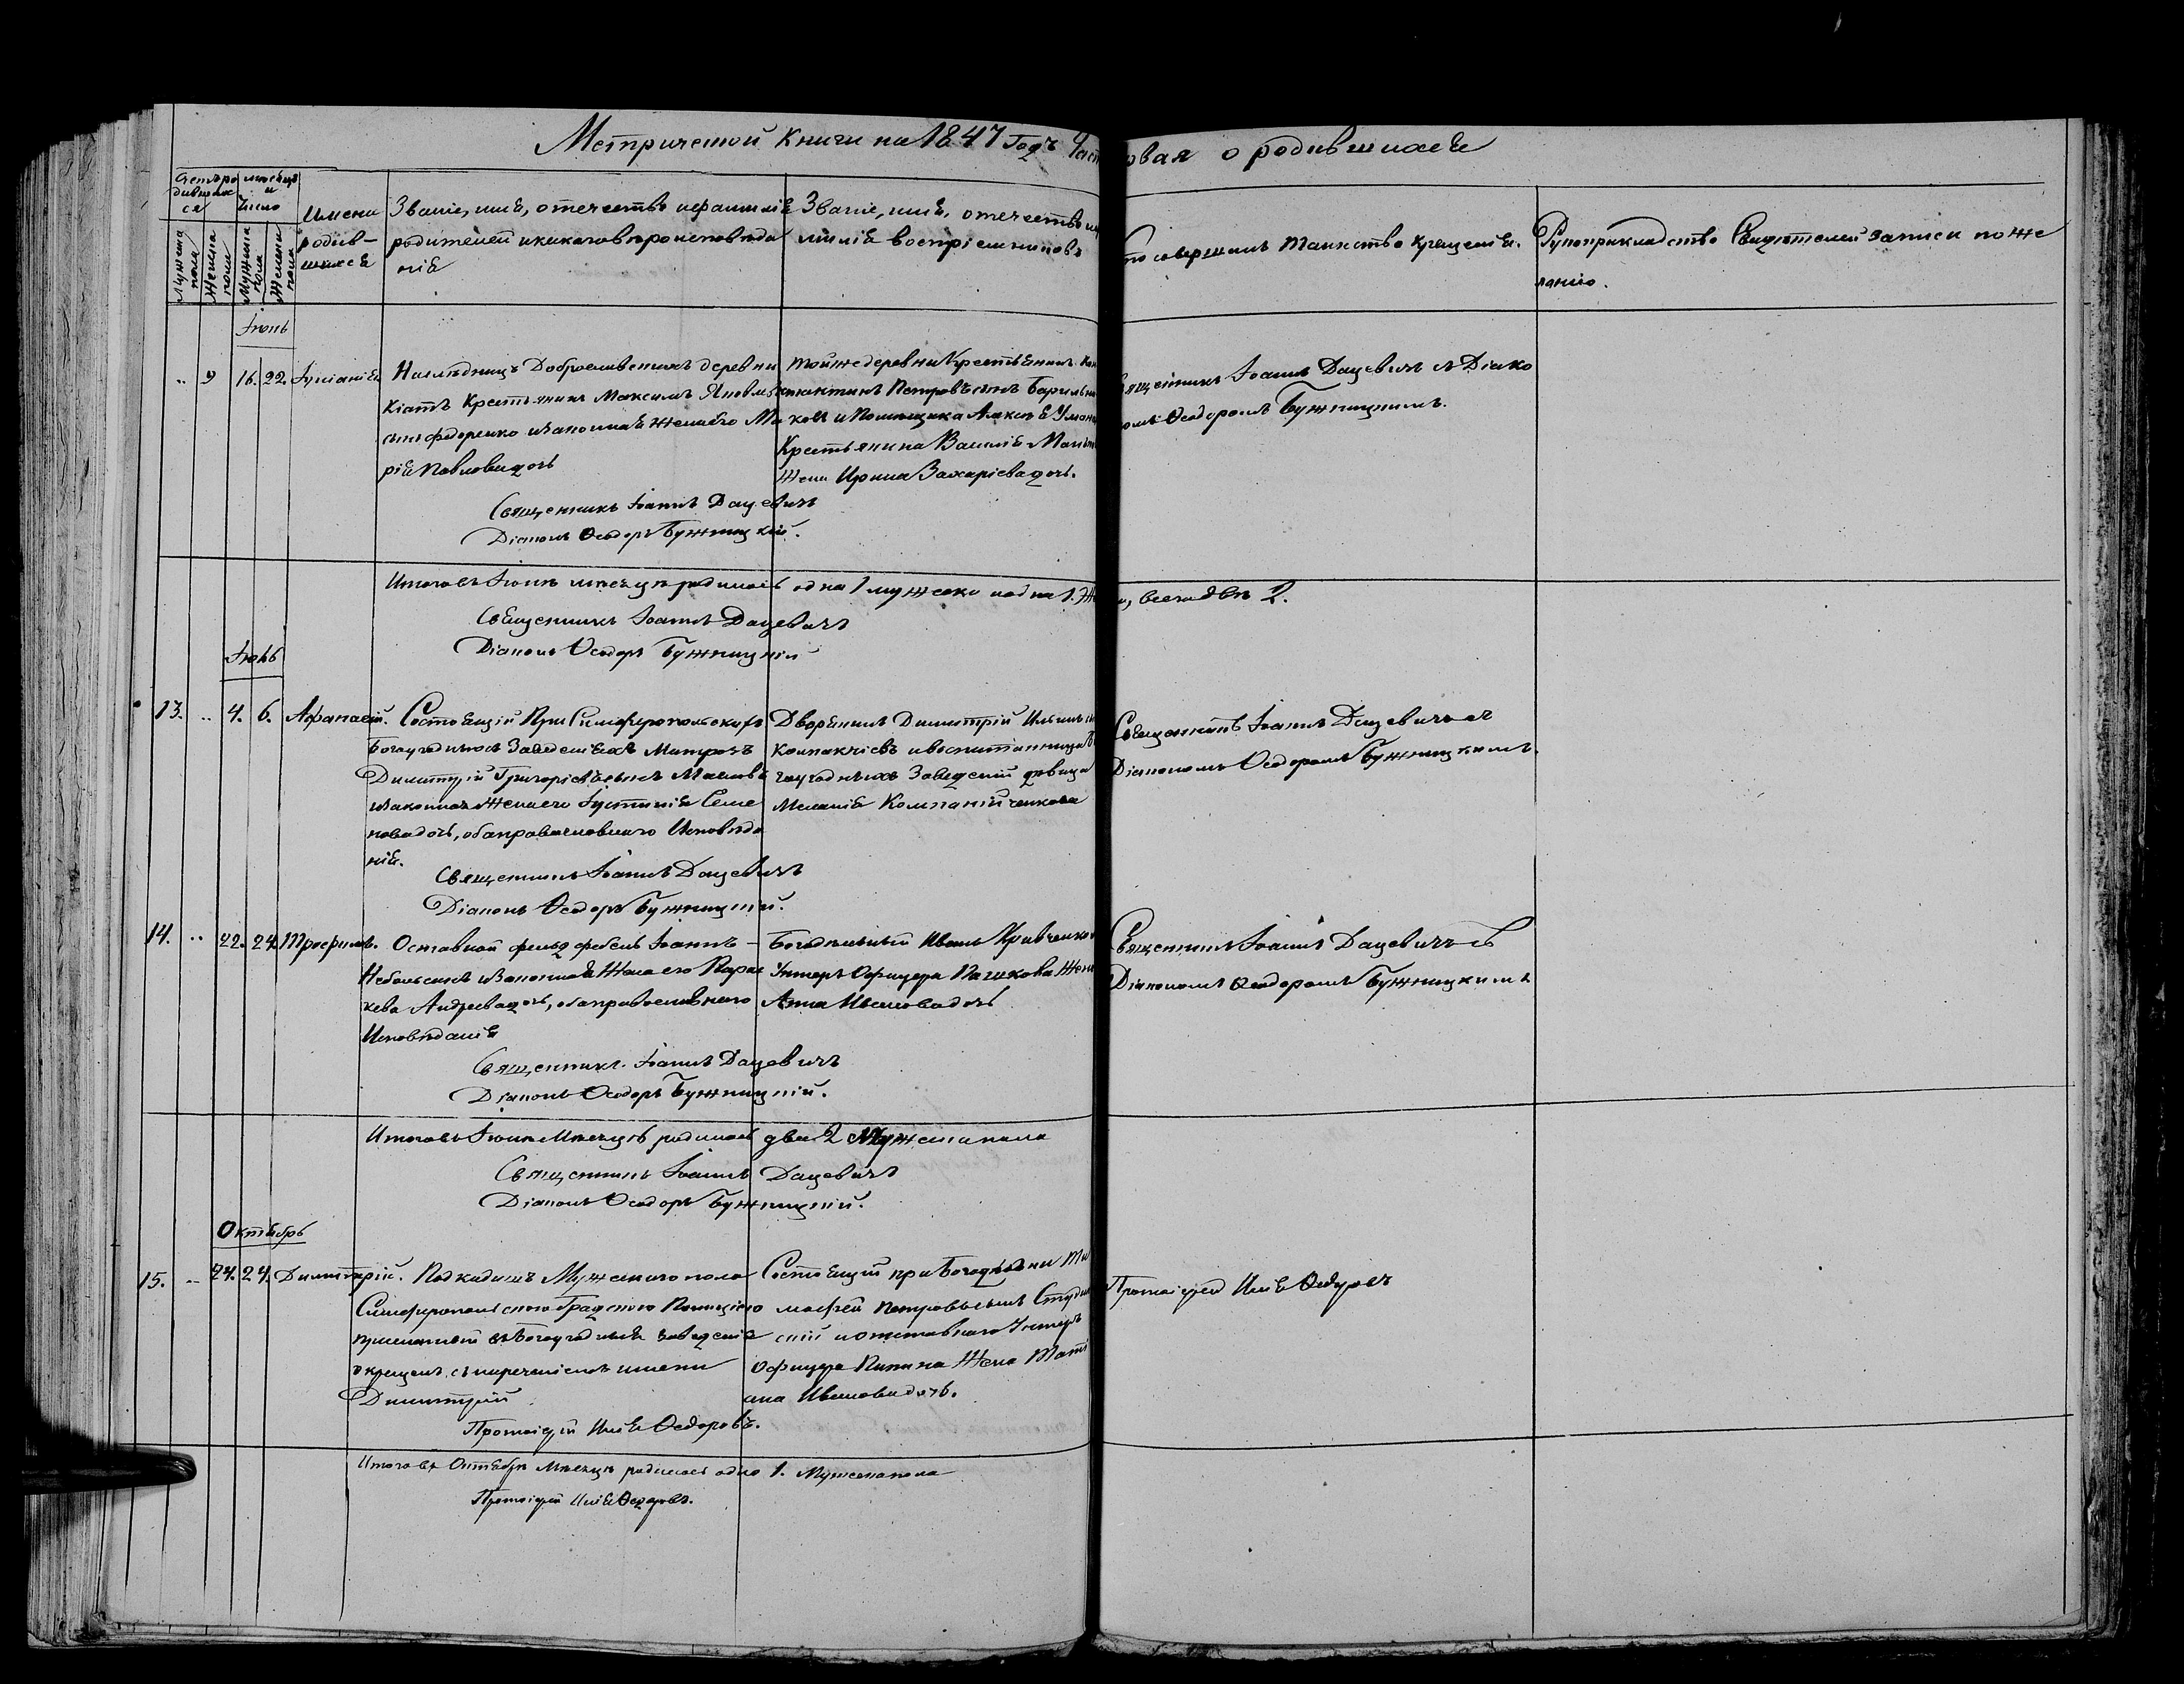 Метрической Книги на 1847 Годъ Част овая о родившихся
Счетъ родившихся
Мѣсяцъ и Число
Мужеска пола
Женска пола
Мужеска пола
Женска пола
Имена родив-
шихся
Званіе, имя, отечество и фамилія
родителей и какого вѣроисповѣда
нія
Званіе, имя, отечество и
милія воспріемниковъ
то совершалъ таинство крещенія.
Рукоприкладство Свидѣтелей записи по же
ланію.
Іюнь
„ 9 16. 22. Іуліанія
Наслѣдницъ Доброславскихъ деревни
Кіятъ Крестьянинъ Максимъ Яковлевъ
сынъ Федоренко и законная жена его Ма
рія Павлова дочь
Священникъ Іоаннъ Дацевичъ
Діаконъ Ѳеодоръ Бужницкій.
той же деревни Крестьянинъ Кон
стантинъ Петровъ сынъ
ковъ и Помѣщика
Крестьянина Василія
Жена Ирина Захаріева дочь.
вященникъ Іоаннъ Дацевичъ съ Діако
номъ Ѳеодоромъ Бужницкимъ.
Итого въ Іюнѣ мѣсяцѣ родилось одна 1 мужеска и одна 1. Же а, всего двѣ 2.
Священникъ Іоаннъ Дацевичъ
Діаконъ Ѳеодоръ Бужницкій
Іюль
13. „ 4. 6. Афанасій.
Состоящій При Симферопольскихъ
Богоугодныхъ Заведеніяхъ Матрозъ
Димитрій Григоріевъ сынъ
и законная жена его Іустинія Семе
нова дочь, оба православнаго Исповѣда
нія.
Священникъ Іоаннъ Дацевичъ
Діаконъ Ѳеодоръ Бужницкій.
Дворянинъ Димитрій Ильинъ с
и воспитанница Бо
гоугодныхъ Заведеній дѣвица
Меланія Компанійченкова
Священникъ Іоаннъ Дацевичъ съ
Діакономъ Ѳеодоромъ Бужницкимъ.
14. „ 22. 24. Трофимъ.
Отставной фельдфебель Іоаннъ
и законная Жена его Парас
кева Андреева дочь, оба православнаго
Исповѣданія
Священникъ Іоаннъ Дацевичъ
Діаконъ Ѳеодоръ Бужницкій.
Богодѣльный Иванъ Кравченко
Унтеръ Офицера Пашкова Жена
Анна Иванова дочь
Священникъ Іоаннъ Дацевичъ съ
Діакономъ Ѳеодоромъ Бужницкимъ
Итого въ Іюлѣ Мѣсяцѣ родилось два 2 Мужеска пола
Священникъ Іоаннъ Дацевичъ
Діаконъ Ѳеодоръ Бужницкій.
Октябрь
15. „ 24. 24. Димитрій.
Подкидышъ Мужескаго пола
Симферопольскою Градскою Полиціею
присланный въ Богоугодныя заведенія
окрещенъ съ нареченіемъ имени
Димитрій
Протоіерей Илія Ѳедоровъ.
Состоящій при Богодѣльни Ти
мофей Петровъ сынъ
скій и отставнаго Унтеръ
Офицера Жена Тать
яна Иванова дочь.
Протоіерей Илія Ѳедоровъ
Итого въ Октябрѣ Мѣсяцѣ родилось одно 1. Мужеска пола
Протоіерей Илія Ѳедоровъ.